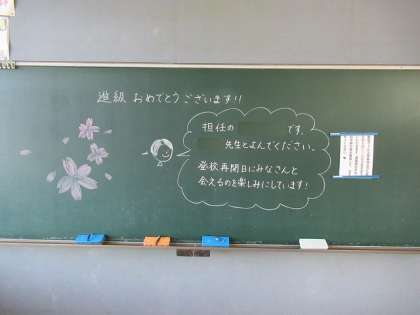 進級 おめでとうございます!!
担任の です。
先生とよんでください。
登校再開日にみなさんと
会えるのを楽しみにしています!